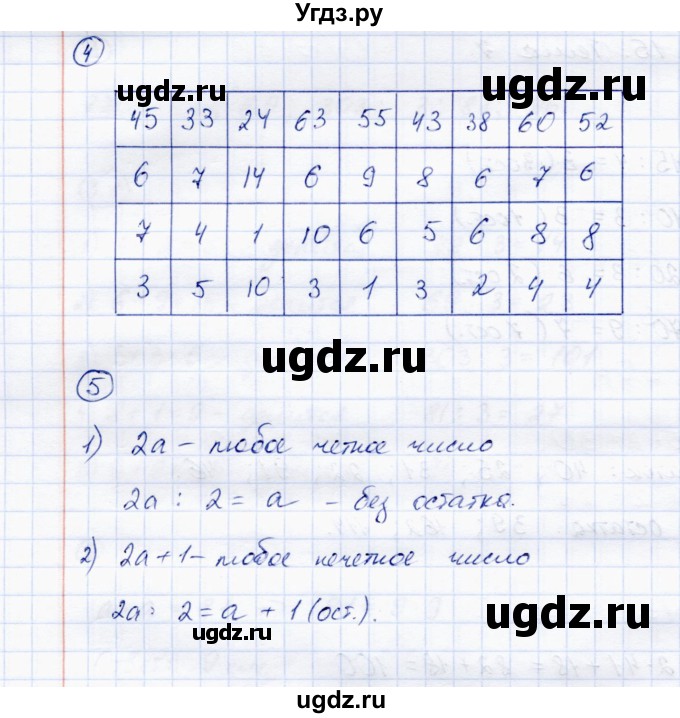 Угдз.ру
4
45 33 24 63 55 43 38 60 52
6 7 14 6 9 8 6 7 6
7 4 1 10 6 5 6 8 8
3 5 10 3 1 3 2 4 4
ugdz.ru ugdz.ru
5
1) 2a – любое четное число
2a : 2 = a – без остатка.
2) 2a + 1 – любое нечетное число
2a : 2 = a + 1 (ост.).
ugdz.ru ugdz.ru
ugdz.ru